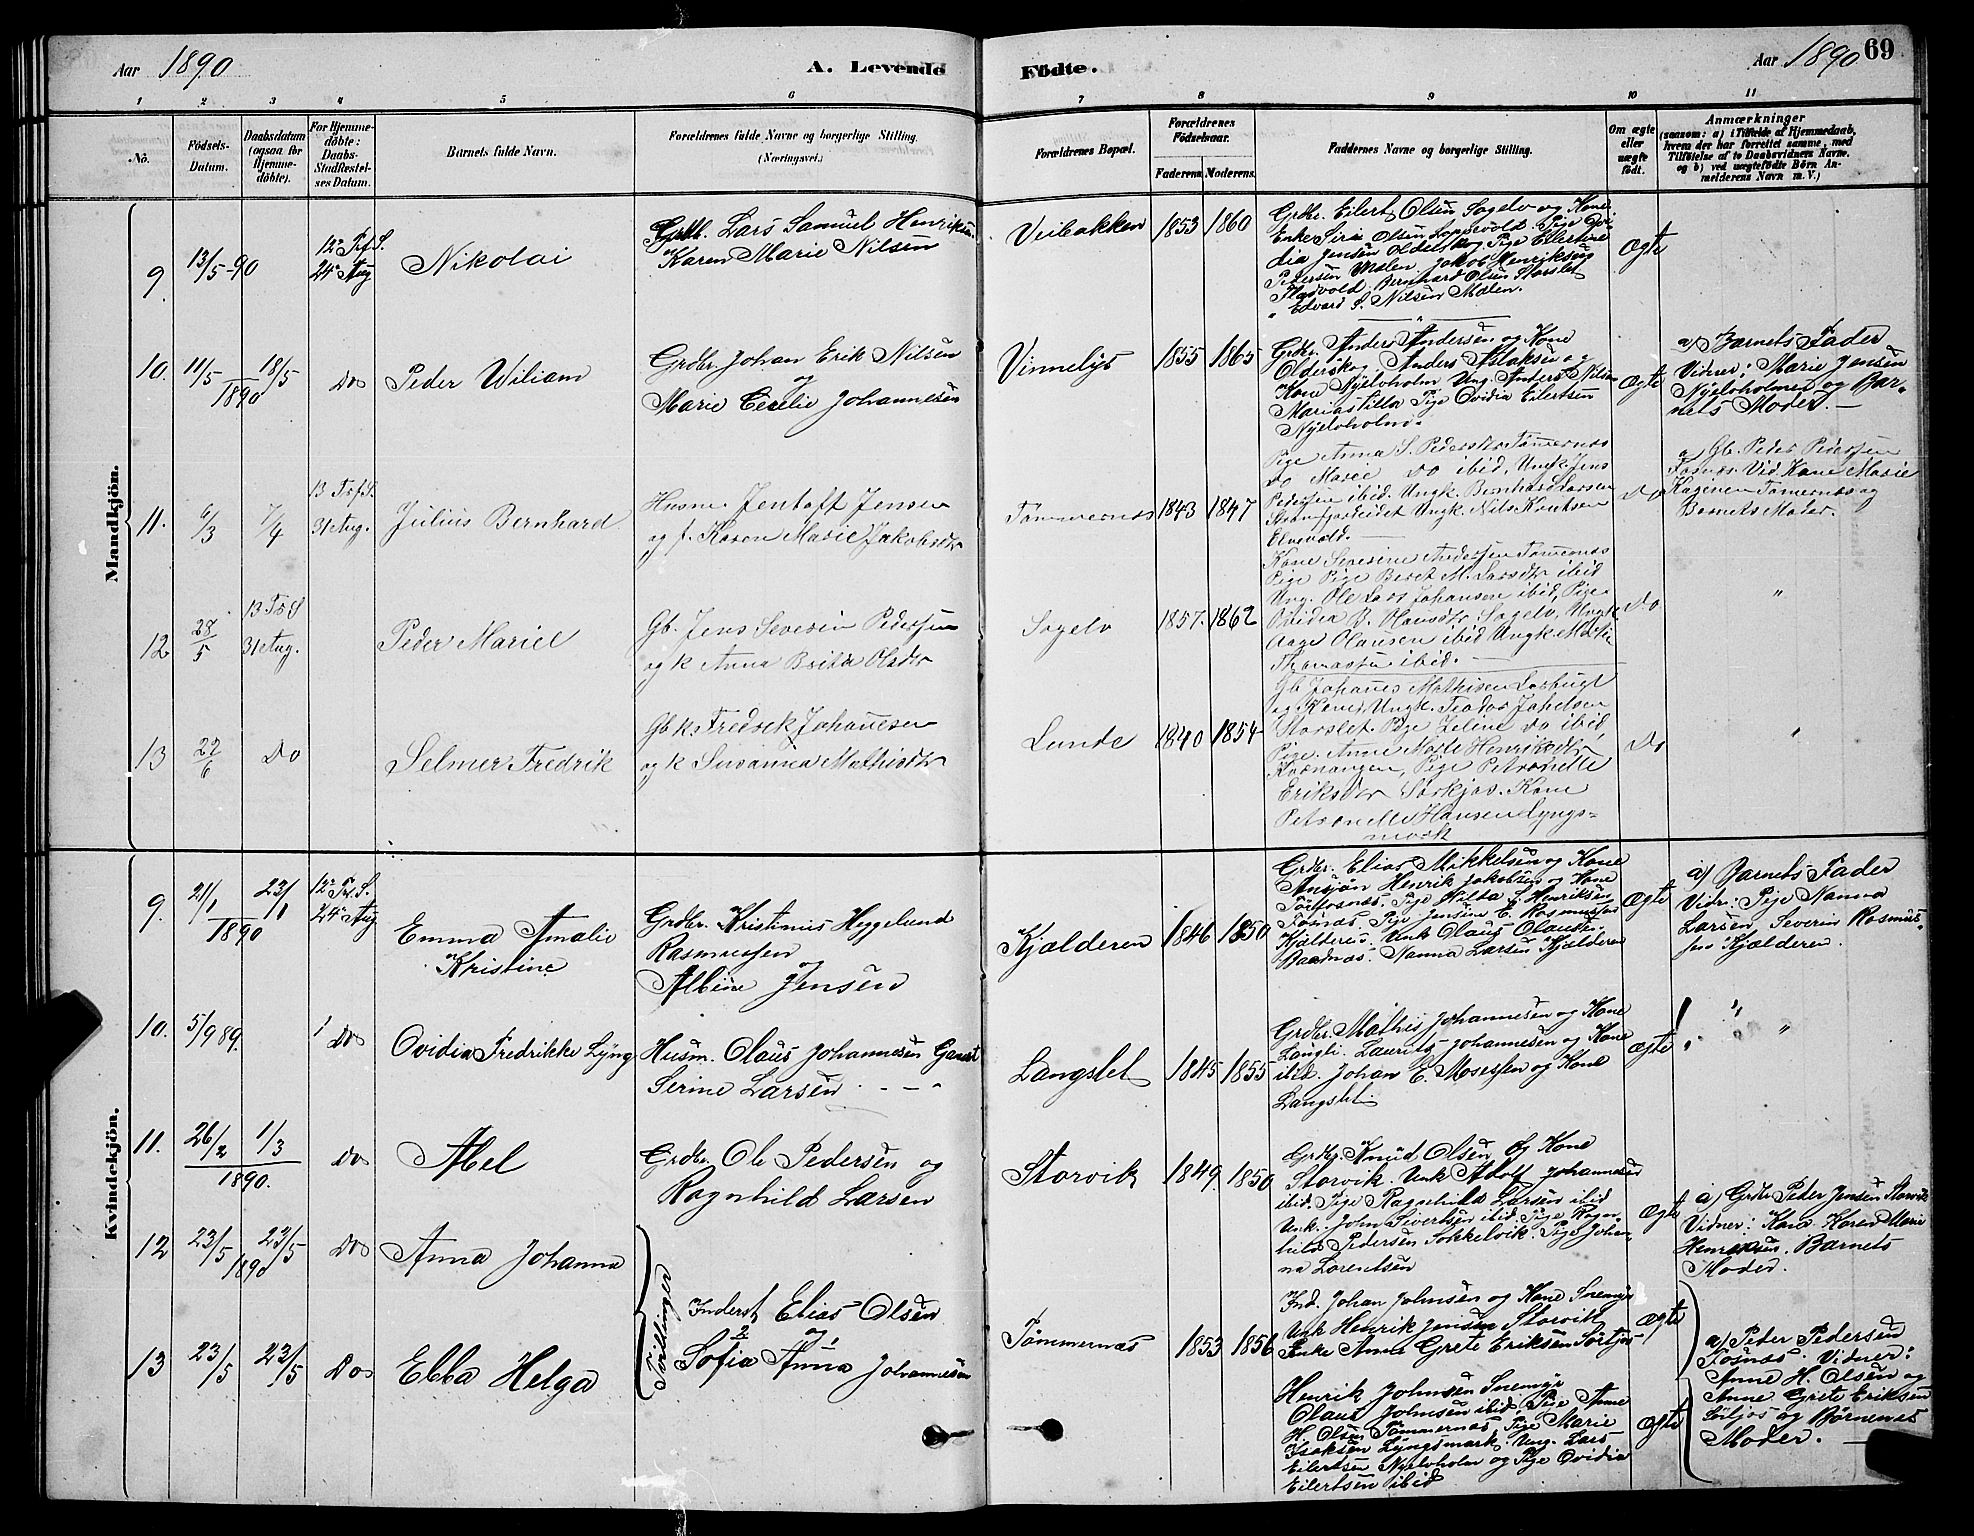 Aar 1890
A. Levende
Födte.
Aar 1890
69
1 2 3 4 5 6 7 8 9 10 11
No.
Födsels-
Datum.
Daabsdatum
(ogsaa for
Hjemme-
döbte).
For Hjemme-
döbte:
Daabs-
Stadfæstel-
ses Datum.
Barnets fulde Navn.
Forældrenes fulde Navne og borgerlige Stilling.
(Næringsvei.)
Forældrenes Bopæl.
Forældrenes
Födselsaar.
Faderens. Moderens.
Faddernes Navne og borgerlige Stilling.
Om ægte
eller
uægte
födt.
Anmærkninger
(saasom: a) i Tilfælde af Hjemmedaab,
hvem der har forrettet samme, med
Tilföielse af to Daabsvidners Navne.
og b) ved uægtefödte Börn An-
melderens Navn m. V.)
Mandkjön.
9 13/5-90
24de Aug
Nikolai
Grdb. Lars Samuel Henriksen
Karen Marie Nilsen
Veibakken 1853 1860
Grdbr. Eilert Olsen Sogelv og Kone
Enke Siri Olsen
dia Jensen Oldersko, Pige Eilertine
Pedersen Mælen Jakob Henriksen
Fladvold. Bernhard Olsen Storslet
" Edvard S. Nilsen Mælen.
Ægte
10. 11/5 18/5
1890
Do
Peder Wiliam
Grdbr. Johan Erik Nilsen
og
Marie Cecelie Johannesen
Vinnelys 1855 1865
Grdbr. Anders Andersen og Kone
Oldersko, Anders Aslaksen og
Kone Nyelvholm Ung. Anders Nilsen
Mariastilla Pige Ovidia Eilertsen
Nyelvholm.
Ægte
a) Barnets Fader
Vidner: Marie Jensen
Nyelvholmen og Bar-
nets Moder. —
11. 6/3 7/4
31 Aug.
Julius Bernhard
Husm. Jentoft Jensen
og f. Karen Marie Jakobsdtr
Tömmernæs 1843 1847
Pige Anna S. Pedersdtr Tömernæs
Do Marie Do ibid, Ungk. Jens
Pedersen ibid. Ungk. Bernhard Larsen
Ungk. Nils Knutsen
Elvevold. —
Do
a Gb. Peder Pedersen
Fosnæs. Vid. Kone Marie
Tömernæs og
Barnets Moder.
12 28/5
31 Aug.
Peder Mariel
Gb. Jens Severin Pedersen
og k Anna Brita Olsdtr
Sogelv 1857. 1862
Kone Severine Andersen Tömernæs
Pige Pige Beret M. Larsdtr ibid
Ung. Ole Lars Johansen ibid, Pige
Ovidia B. Hansdtr Sogelv, Ungk.
Aage Olausen ibid Ungk.
Thomassen ibid. —
Do
"
13 22/6 Do
Selmer Fredrik
Gbk Fredrik Johannesen
og k Susanna Mathisdtr
Lunde 1840 1854
Gb Johanes Mathisen
og Kone, Ungk.
Storslet Pige Jeline Do ibid,
Pige. Anne Marie Henriksdtr
Kvænangen, Pige Petronelle
Eriksdtr Sörkjos. Kone
Petronelle Hansen Lyngs-
mark
Do
"
Kvindekjön.
9. 21/1 23/1
1890
24de Aug
Emma Amalie
Kristine
Grdbr. Kristinus Heggelund
Rasmussen
og
Albine Jensen
Kjælderen 1846 1850
Grdbr. Elias Mikkelsen og Kone
Henrik Jakobsen og Kone
Pige Hilda E. Henriksen
Fosnæs. Pige Jensine E. Rasmussen
Kjælderen. Unk Olaus Olausen
Nanna Larsen Kjælderen
Ægte
a) Barnets Fader
Vidr: Pige Nanna
Larsen Severin Rasmus-
sen Kjælderen.
10. 5/9 89. 1 Do
Ovidia Fredrikke Lyng
Husm. Olaus Johannesen
Serine Larsen
Langslet 1845 1855
Grdbr. Mathis Johannesen og Kone
Langli. Laurits Johannesen og Kone
ibid. Johan E. Mosessen og Kone
Langslet
Ægte
" "
11. 26/2 1/3
1890.
Do
Abel
Grdbr. Ole Pedersen og
Ragnhild Larsen
Storvik 1849. 1850
Grdbr. Knud Olsen og Kone
Storvik. Unk Adolf Johannesen
ibid. Pige Ragnhild Larsen ibid
Unk. John Sivertsen ibid. Pige Ragn-
hild Pedersen Sokkelvik. Pige Johan-
na Lorentsen
Ægte
a) Grdbr Peder Jensen Storvik
Vidner: Kone Karen Marie
Henriksen. Barnets
Moder.
12 23/5 23/5
1890
Do
Anna Johanna
Tvillinger
Inderst Elias Olsen
og
Sofia Anna Johannesen
Tömmernæs 1853 1856
Ind. Johan Johnsen og Kone Snemyr
Unk Henrik Jensen Storvik
Enke Anne Grete Eriksen Sörkjos
Ægte
a) Peder Pedersen
Fosnæs. Vidner:
Anne H. Olsen og
Anne Grete Eriksen
Sörkjos og Børnenes
Moder. —
13 23/5 23/5 Do
Ebba Helga
Henrik Johnsen Snemyr
Olaus Johnsen ibid. Pige Anne
H. Olsen Tömmernæs, Pige Marie
Isaksen Lyngsmark, Ung. Lars
Eilertsen Nyelvholm og Pige Ovidia
Eilertsen ibid
Ægte